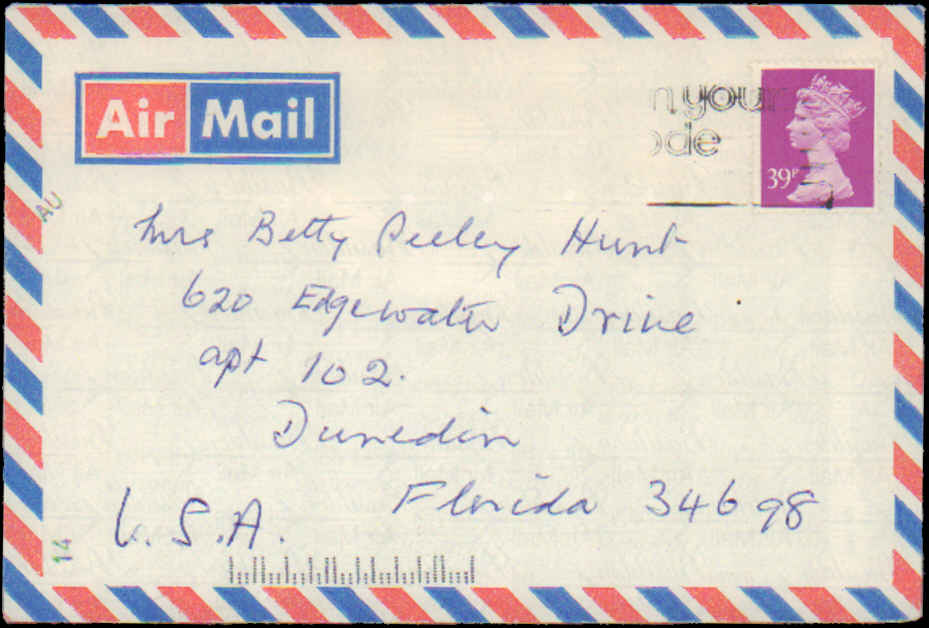 Air Mail
n your
ode
39P
AU
Mrs Betty Peeley Hunt
620 Edgewater Drive
apt 102.
Dunedin
Florida 34698
U.S.A.
14